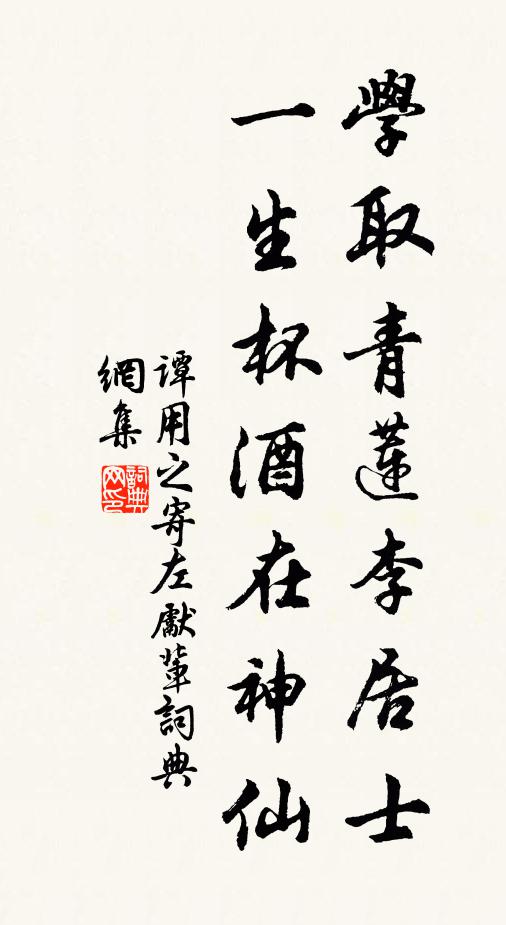 學取青蓮李居士
一生杯酒在神仙
譚用之寄左獻輩詞典
網集
詞典網印